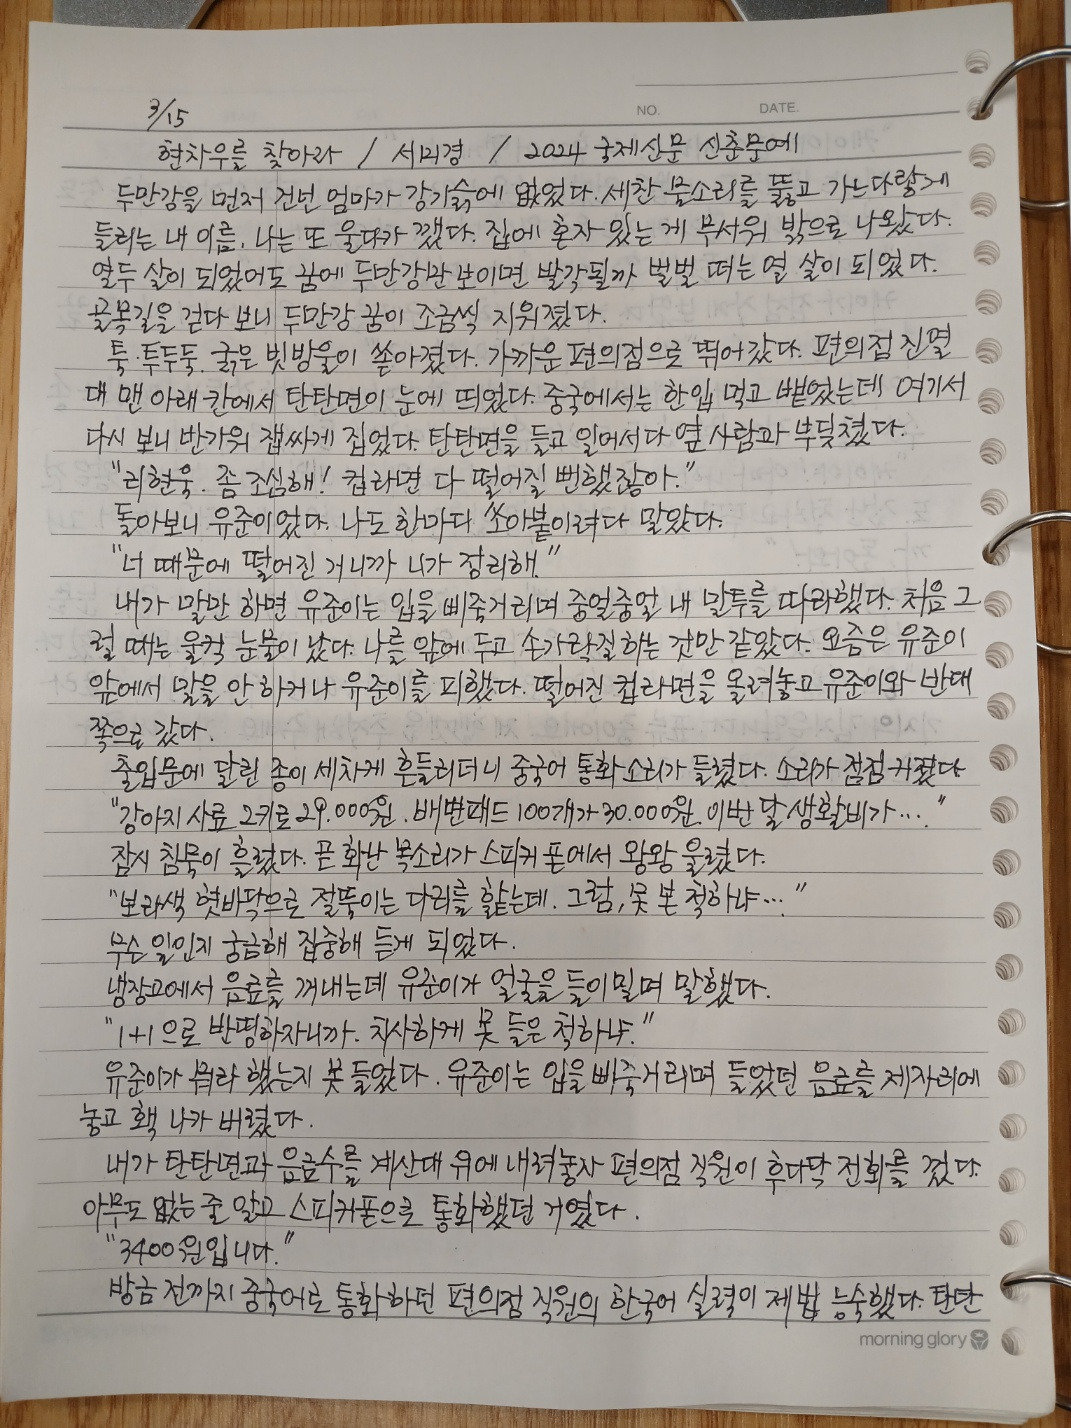 NO. DATE.
3/15
현차우를 찾아라 / 서미경 / 2024 국제신문 신춘문예
두만강을 먼저 건넌 엄마가 강기슭에 없었다. 세찬 물소리를 뚫고 가느다랗게
들리는 내 이름, 나는 또 울다가 깼다. 집에 혼자 있는 게 무서워 밖으로 나왔다.
열두 살이 되었어도 꿈에 두만강만 보이면 발각될까 벌벌 떠는 열 살이 되었다.
골목길을 걷다 보니 두만강 꿈이 조금씩 지워졌다.
툭. 투두둑. 굵은 빗방울이 쏟아졌다. 가까운 편의점으로 뛰어갔다. 편의점 진열
대 맨 아래 칸에서 탄탄면이 눈에 띄었다. 중국에서는 한입 먹고 뱉었는데 여기서
다시 보니 반가워 잽싸게 집었다. 탄탄면을 들고 일어서다 옆 사람과 부딪쳤다.
"리현욱. 좀 조심해! 컵라면 다 떨어질 뻔했잖아."
돌아보니 유준이었다. 나도 한마디 쏘아붙이려다 말았다.
"너 때문에 떨어진 거니까 니가 정리해."
내가 말만 하면 유준이는 입을 삐죽거리며 중얼중얼 내 말투를 따라했다. 처음 그
럴 때는 울컥 눈물이 났다. 나를 앞에 두고 손가락질하는 것만 같았다. 요즘은 유준이
앞에서 말을 안 하거나 유준이를 피했다. 떨어진 컵라면을 올려놓고 유준이와 반대
쪽으로 갔다.
출입문에 달린 종이 세차게 흔들리더니 중국어 통화 소리가 들렸다. 소리가 점점 커졌다
"강아지 사료 2키로 29.000원. 배변패드 100개가 30.000원. 이번 달 생활비가…."
잠시 침묵이 흘렀다. 곧 화난 목소리가 스피커 폰에서 왕왕 울렸다.
"보라색 혓바닥으로 절뚝이는 다리를 핥는데. 그럼, 못 본 척하냐…"
무슨 일인지 궁금해 집중해 듣게 되었다.
냉장고에서 음료를 꺼내는데 유준이가 얼굴을 들이밀며 말했다.
"1+1으로 반띵하자니까. 치사하게 못 들은 척하냐."
유준이가 뭐라 했는지 못 들었다. 유준이는 입을 삐죽거리며 들었던 음료를 제자리에
놓고 홱 나가 버렸다.
내가 탄탄면과 음료수를 계산대 위에 내려놓자 편의점 직원이 후다닥 전화를 껐다.
아무도 없는 줄 알고 스피커폰으로 통화했던 거였다.
"3400원입니다."
방금 전까지 중국어로 통화하던 편의점 직원의 한국어 실력이 제법 능숙했다. 탄탄
morning glory